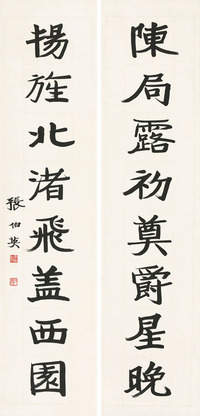 陳局露初奠爵星晚
揚旌北渚飛盖西園
張伯英